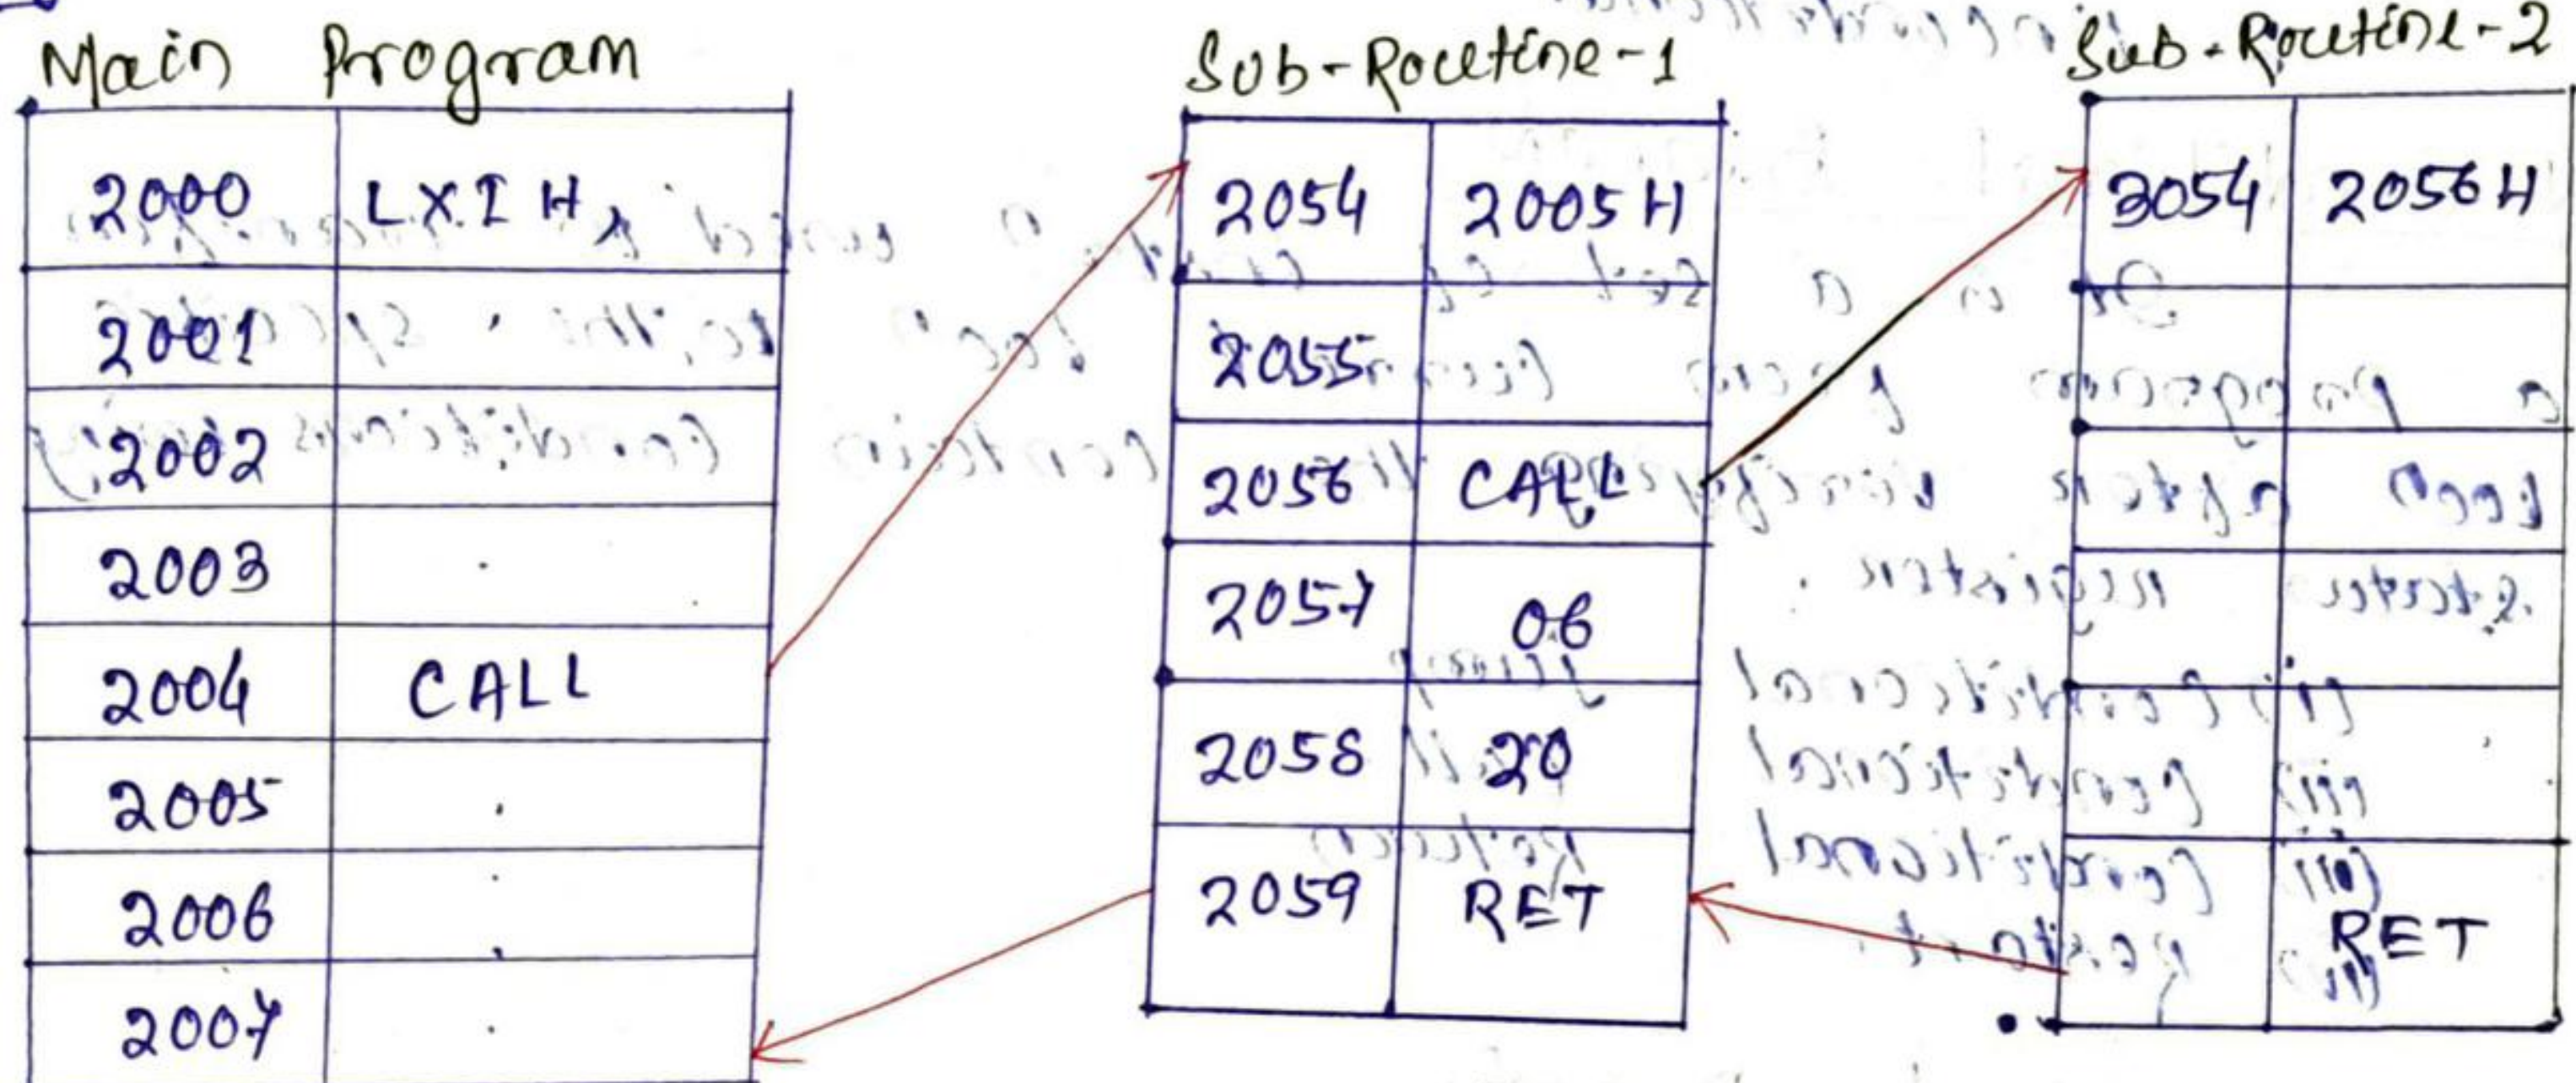 Main Program
2000 LXI H,
2001
2002
2003 .
2004 CALL
2005 .
2006
2007 .
Sub-Routine-1
2054 2005H
2055
2056 CALL
2057 06
2058 20
2059 RET
Sub-Routine-2
3054 2056H
RET